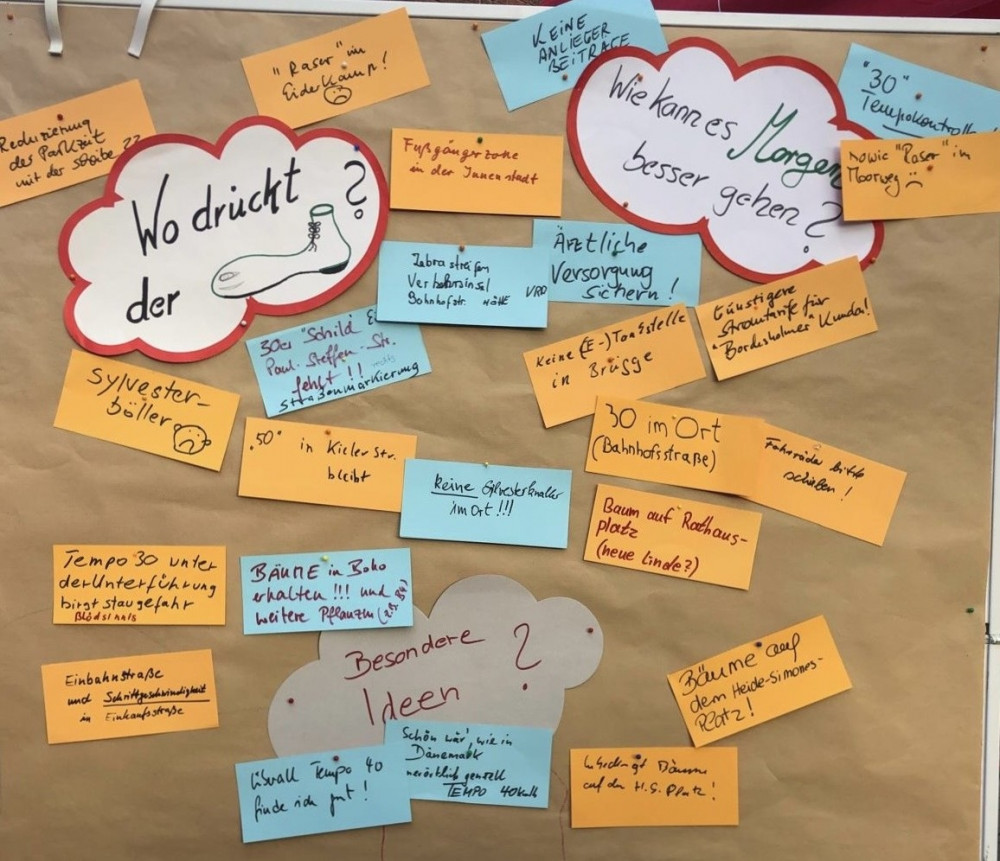 KEINE
ANLIEGER
BEITRÄGE
"Raser" im
Eiderkamp!
"30"
Tempokontrolle
Reduzierung
der Parkzeit
mit der Scheibe ??
Wo drückt
der
?
Fußgängerzone
in der Innenstadt
Wie kann es Morgen
besser gehen?
"Raser" im
Moorweg
Zebrastreifen
Verkehrsinsel
Bahnhofstr. HÖHE VRB
ÄRZTLICHE
VERSORGUNG
SICHERN!
30er Schild
Paul-Steffen-Str.
fehlt!!
Straßenmarkierung
Keine (E-)Tankstelle
in Brügge
Günstigere
Stromtarife für
"Bordesholmer" Kunden!
Sylvester-
böller
"50" in Kieler Str.
bleibt
Keine Sylvesterknaller
im Ort!!!
30 im Ort
(Bahnhofsstraße)
Fahrräder bitte
schieben!
Baum auf Rathaus-
platz
(neue Linde?)
Tempo 30 unter
der Unterführung
birgt Staugefahr
Blödsinn
BÄUME in Boho
erhalten!!! und
weitere Pflanzen
Einbahnstraße
und Schrittgeschwindigkeit
in Einkaufsstraße
Besondere
Ideen
?
Bäume auf
dem Heide-Simonis-
Platz!
Überall Tempo 40
finde ich gut!
Schön wär', wie in
Dänemark
generell
TEMPO 40
Unbedingt Bäume
auf den H.S. Platz!